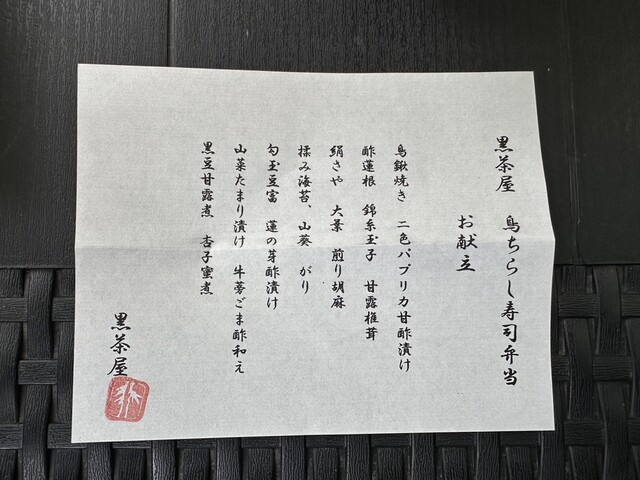 黒茶屋 鳥ちらし寿司弁当
お献立
鳥鍬焼き 二色パプリカ甘酢漬け
酢蓮根 錦糸玉子 甘露椎茸
絹さや 大葉 煎り胡麻
揉み海苔、山葵 がり
勾玉豆富 蓮の芽酢漬け
山菜たまり漬け 牛蒡ごま酢和え
黒豆甘露煮 杏子蜜煮
黒茶屋